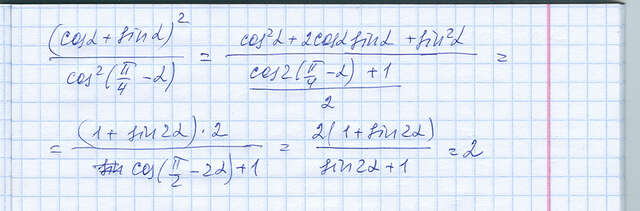 (cosα + sinα)² / cos²(π/4 − α) = (cos²α + 2cosα sinα + sin²α) / ((cos2(π/4 − α) + 1) / 2) =
= ((1 + sin2α) · 2) / (cos(π/2 − 2α) + 1) = 2(1 + sin2α) / (sin2α + 1) = 2